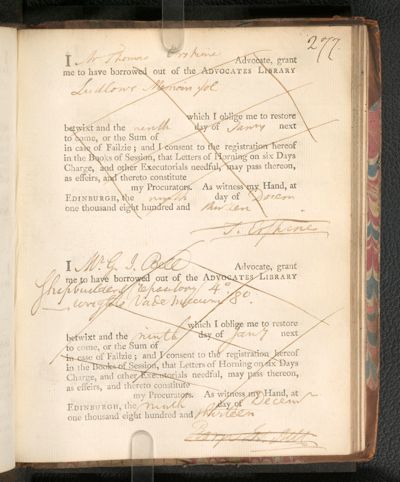 277.
I Mr Thomas Erskine Advocate, grant
me to have borrowed out of the ADVOCATES LIBRARY
Ludlows
which I oblige me to restore
betwixt and the ninth day of Jany next
to come, or the Sum of
in case of Failzie; and I consent to the registration hereof
in the Books of Session, that Letters of Horning on six Days
Charge, and other Executorials needful, may pass thereon,
as effeirs, and thereto constitute
my Procurators. As witness my Hand, at
EDINBURGH, the ninth day of Decem
one thousand eight hundred and thirteen
T. Erskine
I Mr G. J. Bell Advocate, grant
me to have borrowed out of the ADVOCATES LIBRARY
Shipbuilders Repository 4o
Vade Mecum 8o.
which I oblige me to restore
betwixt and the ninth day of Jany next
to come, or the Sum of
in case of Failzie; and I consent to the registration hereof
in the Books of Session, that Letters of Horning on six Days
Charge, and other Executorials needful, may pass thereon,
as effeirs, and thereto constitute
my Procurators. As witness my Hand, at
EDINBURGH, the ninth day of Decemr
one thousand eight hundred and thirteen
Bell